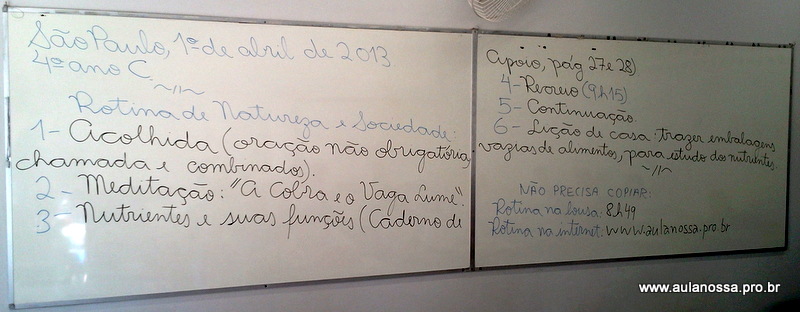 São Paulo, 1º de abril de 2013
4º ano C
~//~
Rotina de Natureza e Sociedade:
1- Acolhida (oração não obrigatória,
chamada e combinados).
2- Meditação: "A Cobra e o Vaga Lume".
3- Nutrientes e suas funções (Caderno de
Apoio, pág 27 e 28)
4- Recreio (9h15)
5- Continuação
6- Lição de casa: trazer embalagens
vazias de alimentos, para estudo dos nutrientes.
~//~
NÃO PRECISA COPIAR:
Rotina na lousa: 8h49
Rotina na internet: www.aulanossa.pro.br
www.aulanossa.pro.br